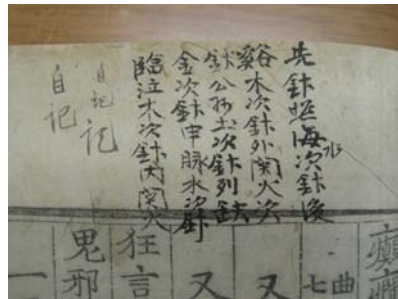 先針照海水次針後
谿木次針外関火次
針公孫土次針列缺
金次針申脉水次針
臨泣木次針内関火
自记
记
自记
曲
七
又
又
狂言
鬼邪
一